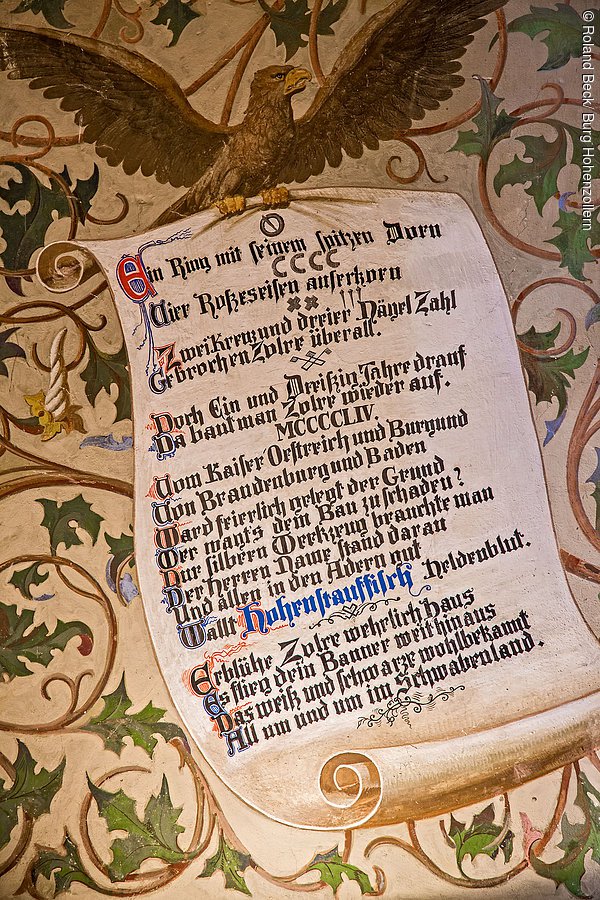 Ein Ring mit seinem spitzen Dorn
Vier Roßeseisen auserkorn
Zwei Kreuz und dreier Nägel Zahl
Gebrochen Zolre überall.
Doch Ein und Dreißig Jahre drauf
Da baut man Zolre wieder auf.
MCCCCLIV.
Vom Kaiser Oestreich und Burgund
Von Brandenburg und Baden
Ward feierlich gelegt der Grund
Wer wagt's dem Bau zu schaden?
Nur silbern Werkzeug brauchte man
Der Herren Name stand daran
Und allen in den Adern gut
Wallt Hohenstauffisch Heldenblut.
Erblühe Zolre wehrlich Haus
Es flieg dein Banner weit hinaus
Das weiß und schwarze wohlbekannt
All um und um im Schwabenland.
© Roland Beck/ Burg Hohenzollern